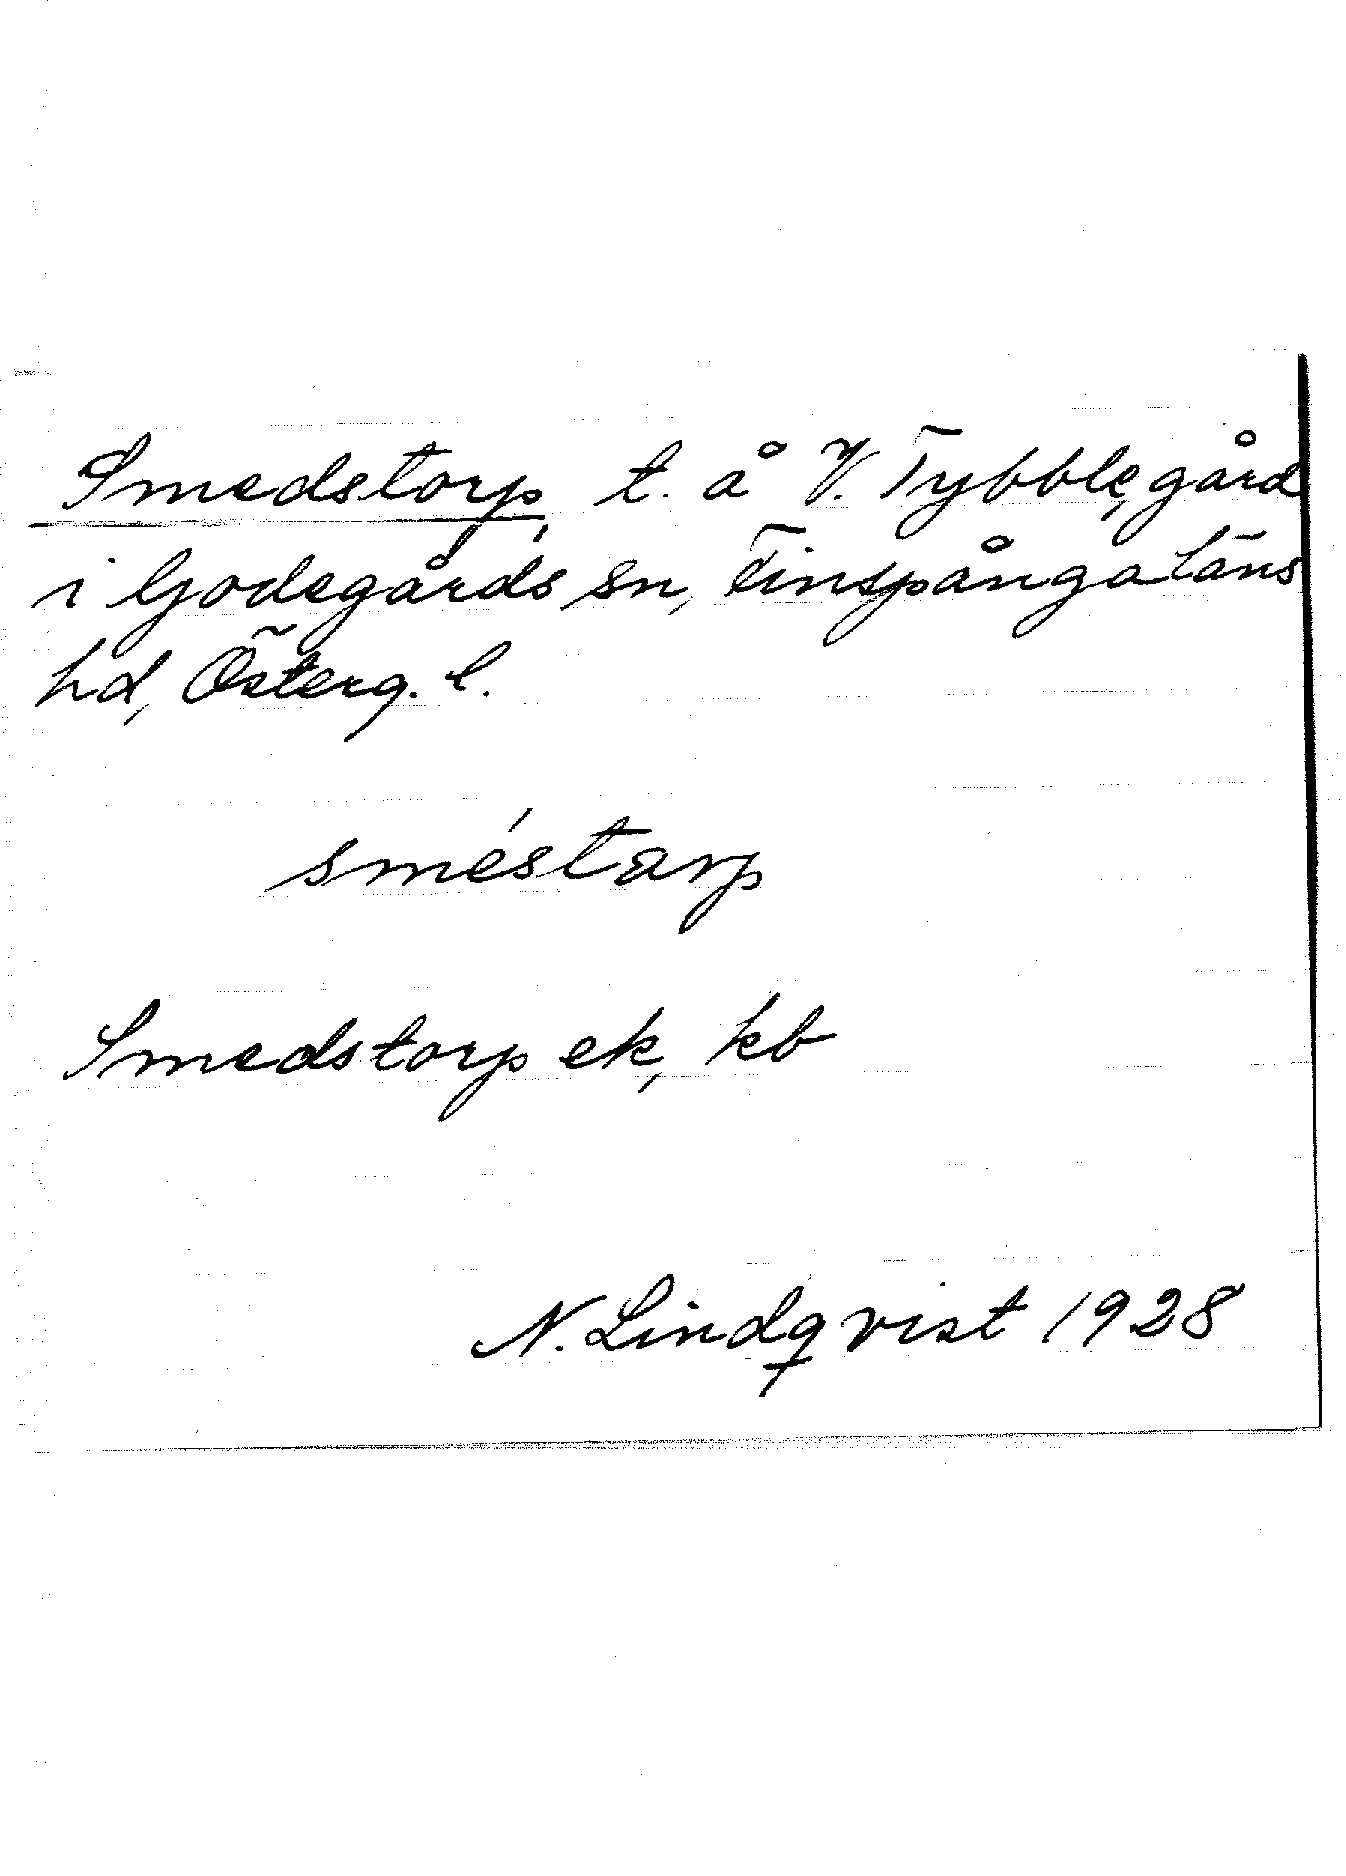 Smedstorp, t. å V. Tybble, gård
i Godegårds sn, Finspånga läns
hd, Österg. l.
sméstarp
Smedstorp ek, kb
N. Lindqvist 1928